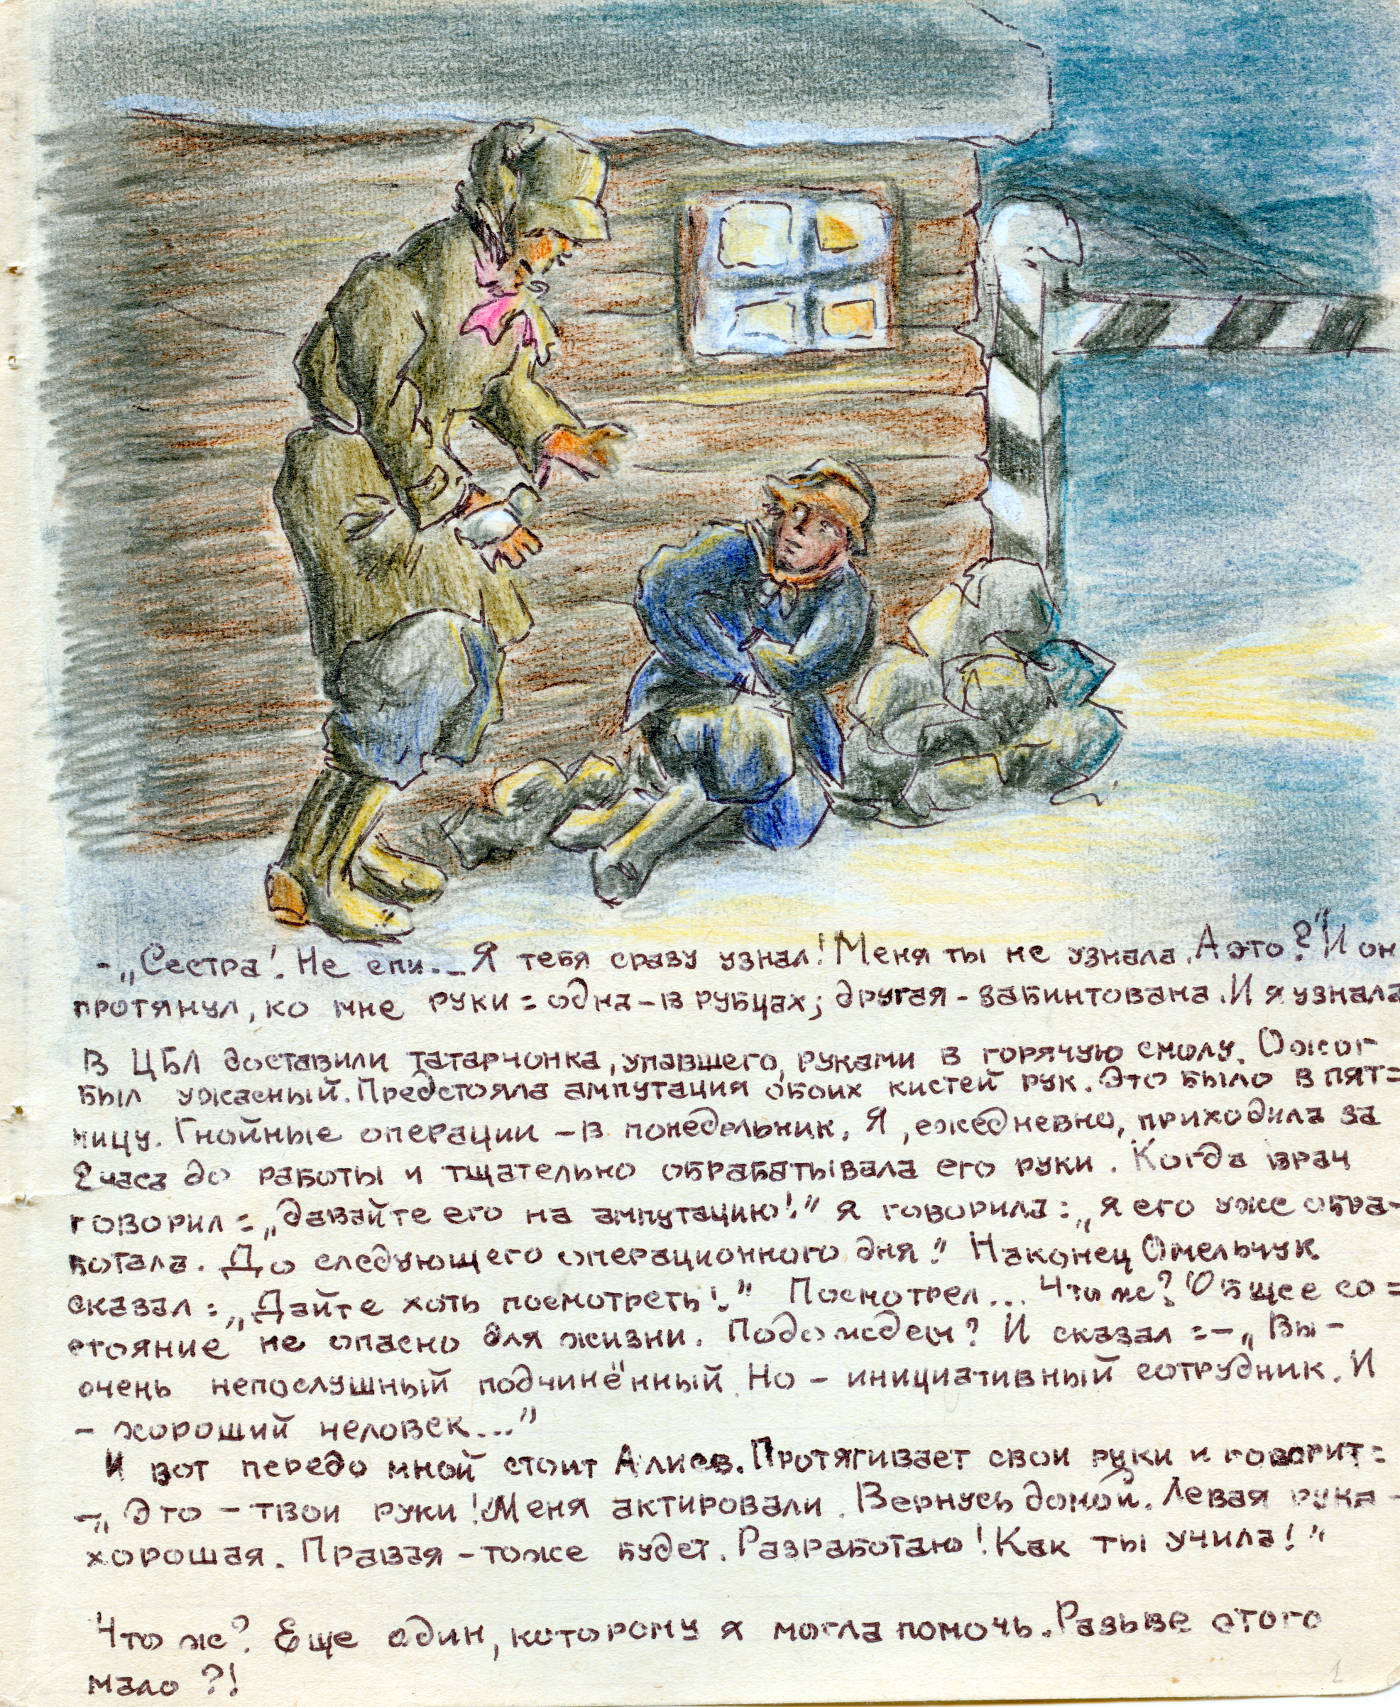 -„Сестра! Не спи... Я тебя сразу узнал! Меня ты не узнала. А это?" И он
протянул, ко мне руки = одна – в рубцах; другая - забинтована. И я узнала
В ЦБЛ доставили татарчонка, упавшего руками в горячую смолу. Ожог
был ужасный. Предстояла ампутация обоих кистей рук. Это было в пят=
ницу. Гнойные операции – в понедельник. Я, ежедневно, приходила за
2 часа до работы и тщательно обрабатывала его руки. Когда врач
говорил = „давайте его на ампутацию!" я говорила: „я его уже обра-
ботала. До следующего операционного дня." Наконец Омельчук
сказал: „Дайте хоть посмотреть!" Посмотрел... Что ж? Общее со=
стояние не опасно для жизни. Подождем? И сказал =–„Вы-
очень непослушный подчинённый. Но – инициативный сотрудник. И
– хороший человек..."
И вот передо мной стоит Алиев. Протягивает свои руки и говорит:
–„Это – твои руки! Меня актировали. Вернусь домой. Левая рука –
хорошая. Правая – тоже будет. Разработаю! Как ты учила!"
Что ж? Еще один, которому я могла помочь. Разьве этого
мало?!
1